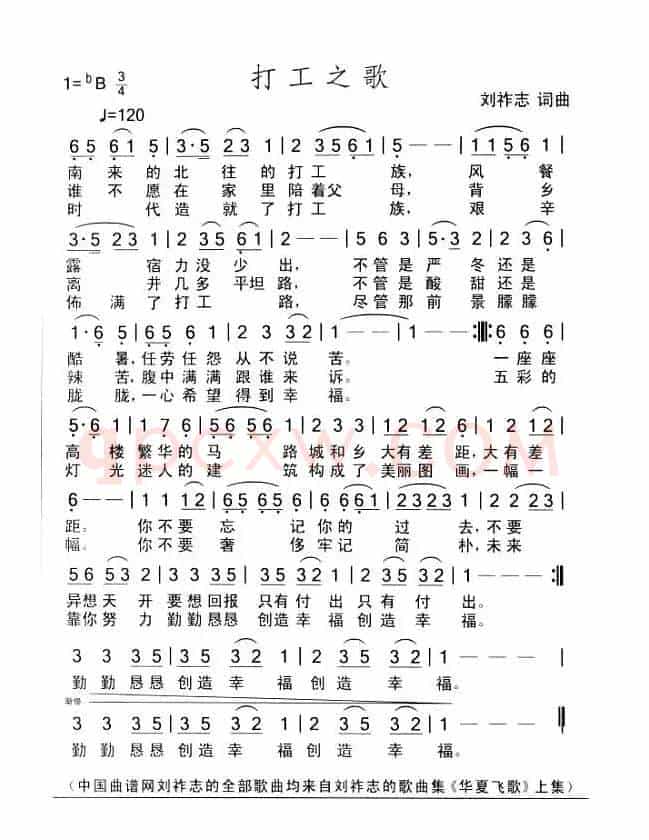 打工之歌
1=ᵇB 3/4
刘祚志 词曲
♩=120
6 5 6 1 5 | 3·5 2 3 1 | 2 3 5 6 1 | 5 — — | 1 1 5 6 |
南来的北往的打工族,风餐
谁不愿在家里陪着父母,背乡
时代造就了打工族,艰辛
3·5 2 3 1 | 2 2 5 6 1 | 2 — — | 5 6 3 | 5 6 1 2 | 2 3 6 |
露宿力没少出,不管是严冬还是
离井几多平坦路,不管是酸甜还是
佈满了打工路,尽管那前景朦朦
1·6 5 | 5 6 5 1 | 2 3 3 2 | 1 — — | 1 — — :‖: 6 6 6 |
酷暑,任劳任怨从不说苦。一座座
辣苦,腹中满满跟谁来诉。五彩的
胧胧,一心希望得到幸福。
5·6 1 | 1 7 6 | 5 6 1 3 | 2 3 1 2 | 1 2 3 | 1 2 1 2 |
高楼繁华的马路城和乡大有差距,大有差
灯光迷人的建筑构成了美丽图画,一幅一
6 — — | 1 1 2 | 6 5 6 5 | 5 6 1 6 1 | 2 3 2 3 | 1 2 2 2 3 |
距。你不要忘记你的过去,不要
幅。你不要奢侈牢记简朴,未来
5 6 5 3 2 | 3 5 3 5 | 3 5 3 2 | 2 3 5 3 2 | 6 — — | 2 — — :‖
异想天开要想回报只有付出只有付出。
靠你努力勤勤恳恳创造幸福创造幸福。
3 3 3 5 | 3 5 3 2 | 2 1 | 2 3 5 3 2 | 1 — — |
勤勤恳恳创造幸福创造幸福。
渐慢
3 3 3 5 | 3 5 3 2 | 2 1 | 2 3 5 3 2 | 1 — — ‖
勤勤恳恳创造幸福创造幸福。
(中国曲谱网刘祚志的全部歌曲均来自刘祚志的歌曲集《华夏飞歌》上集)
qpcxw.COM